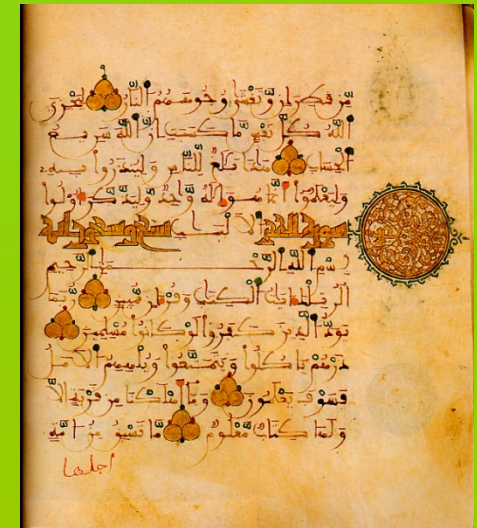 مِّن قَطِرَانٍ وَتَغْشَىٰ وُجُوهَهُمُ النَّارُ لِيَجْزِيَ
اللَّهُ كُلَّ نَفْسٍ مَّا كَسَبَتْ إِنَّ اللَّهَ سَرِيعُ
الْحِسَابِ هَٰذَا بَلَٰغٌ لِّلنَّاسِ وَلِيُنذَرُوا بِهِ
وَلِيَعْلَمُوا أَنَّمَا هُوَ إِلَٰهٌ وَٰحِدٌ وَلِيَذَّكَّرَ أُولُوا
سورة الحجر الْأَلْبَٰبِ تسع وتسعون آية
بِسْمِ اللَّهِ الرَّحْمَٰنِ الرَّحِيمِ
الٓر تِلْكَ ءَايَٰتُ الْكِتَٰبِ وَقُرْءَانٍ مُّبِينٍ رُّبَمَا
يَوَدُّ الَّذِينَ كَفَرُوا لَوْ كَانُوا مُسْلِمِينَ
ذَرْهُمْ يَاكُلُوا وَيَتَمَتَّعُوا وَيُلْهِهِمُ الْأَمَلُ
فَسَوْفَ يَعْلَمُونَ وَمَا أَهْلَكْنَا مِن قَرْيَةٍ إِلَّا
وَلَهَا كِتَابٌ مَّعْلُومٌ مَّا تَسْبِقُ مِنْ أُمَّةٍ
اجلها